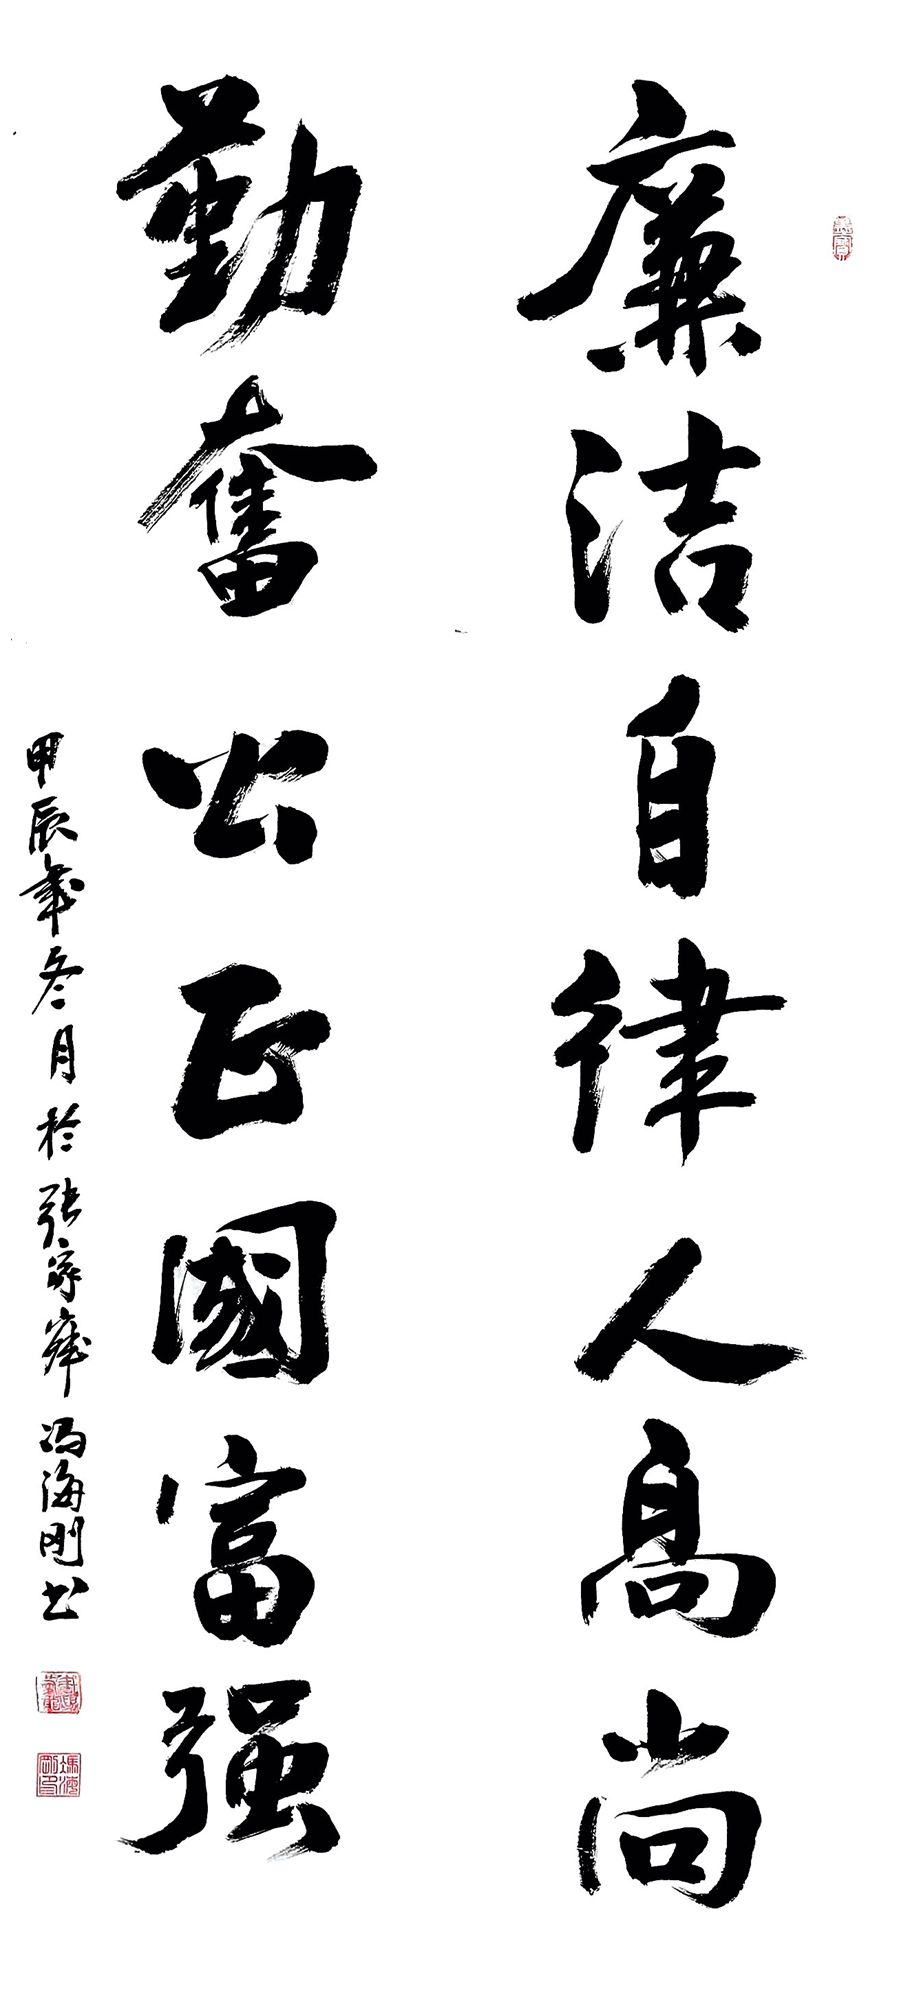 廉洁自律人高尚
勤奋公正國富强
甲辰年冬月於张家峁冯海刚书